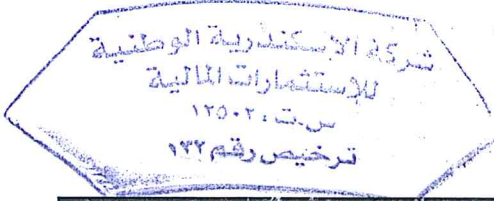 شركة الاسكندرية الوطنية
للإستثمارات المالية
س.ت: ١٢٥٠٢
ترخيص رقم ١٣٢